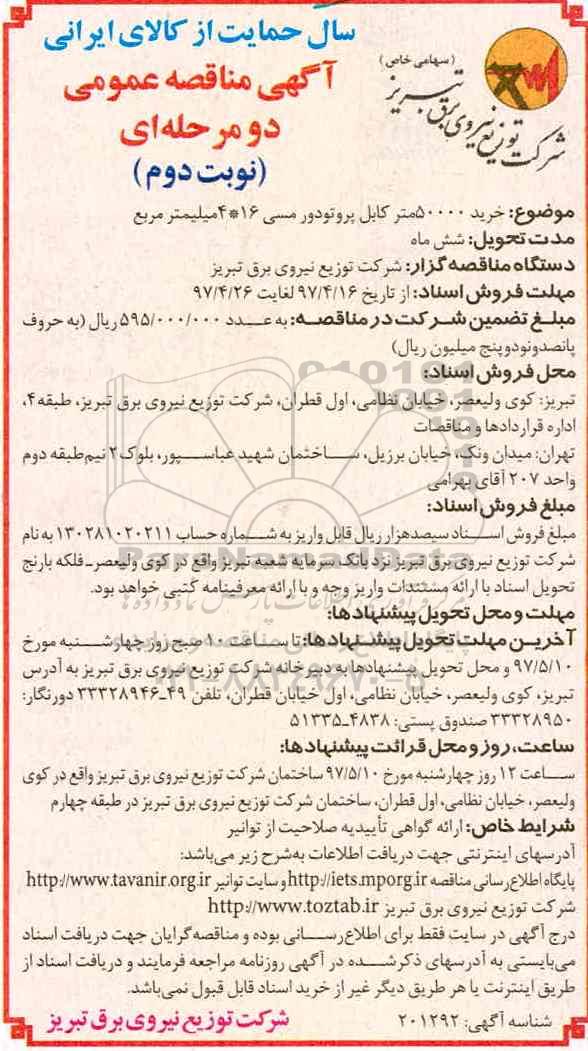 سال حمایت از کالای ایرانی
(سهامی خاص)
شرکت توزیع نیروی برق تبریز
آگهی مناقصه عمومی
دو مرحله‌ای
(نوبت دوم)
موضوع: خرید ۵۰۰۰۰متر کابل پروتودور مسی ۱۶*۴میلیمتر مربع
مدت تحویل: شش ماه
دستگاه مناقصه گزار: شرکت توزیع نیروی برق تبریز
مهلت فروش اسناد: از تاریخ ۹۷/۴/۱۶ لغایت ۹۷/۴/۲۶
مبلغ تضمین شرکت در مناقصه: به عدد ۵۹۵/۰۰۰/۰۰۰ ریال (به حروف
پانصدونودوپنج میلیون ریال)
محل فروش اسناد:
تبریز: کوی ولیعصر، خیابان نظامی، اول قطران، شرکت توزیع نیروی برق تبریز، طبقه۴،
اداره قراردادها و مناقصات
تهران: میدان ونک، خیابان برزیل، ساختمان شهید عباسپور، بلوک۲ نیم‌طبقه دوم
واحد ۲۰۷ آقای بهرامی
مبلغ فروش اسناد:
مبلغ فروش اسناد سیصدهزار ریال قابل واریز به شماره حساب ۱۳۰۲۸۱۰۲۰۲۱۱ به نام
شرکت توزیع نیروی برق تبریز نزد بانک سرمایه شعبه تبریز واقع در کوی ولیعصر-فلکه بارنج
تحویل اسناد با ارائه مستندات واریز وجه و با ارائه معرفینامه کتبی خواهد بود.
مهلت و محل تحویل پیشنهادها:
آخرین مهلت تحویل پیشنهادها: تا ساعت ۱۰ صبح روز چهارشنبه مورخ
۹۷/۵/۱۰ و محل تحویل پیشنهادها به دبیرخانه شرکت توزیع نیروی برق تبریز به آدرس
تبریز، کوی ولیعصر، خیابان نظامی، اول خیابان قطران، تلفن ۴۹-۳۳۳۲۸۹۴۶ دورنگار:
۳۳۳۲۸۹۵۰ صندوق پستی: ۴۸۳۸-۵۱۳۳۵
ساعت، روز و محل قرائت پیشنهادها:
ساعت ۱۲ روز چهارشنبه مورخ ۹۷/۵/۱۰ ساختمان شرکت توزیع نیروی برق تبریز واقع در کوی
ولیعصر، خیابان نظامی، اول قطران، ساختمان شرکت توزیع نیروی برق تبریز در طبقه چهارم
شرایط خاص: ارائه گواهی تأییدیه صلاحیت از توانیر
آدرسهای اینترنتی جهت دریافت اطلاعات به‌شرح زیر می‌باشد:
پایگاه اطلاع رسانی مناقصه http://iets.mporg.ir و سایت توانیر http://www.tavanir.org.ir
شرکت توزیع نیروی برق تبریز http://www.toztab.ir
درج آگهی در سایت فقط برای اطلاع‌رسانی بوده و مناقصه‌گرایان جهت دریافت اسناد
می‌بایستی به آدرسهای ذکرشده در آگهی روزنامه مراجعه فرمایند و دریافت اسناد از
طریق اینترنت یا هر طریق دیگر غیر از خرید اسناد قابل قبول نمی‌باشد.
شناسه آگهی: ۲۰۱۲۹۲
شرکت توزیع نیروی برق تبریز
ParsNamadData
۰۲۱-۸۸۳۴۹۶۷۰-۵